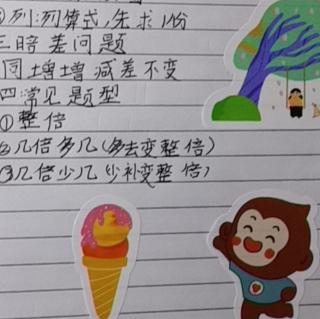 ③列:列算式,先求1份
三暗差问题
同增增减差不变
四常见题型
①整倍
②几倍多几(多去变整倍)
③几倍少几(少补变整倍)